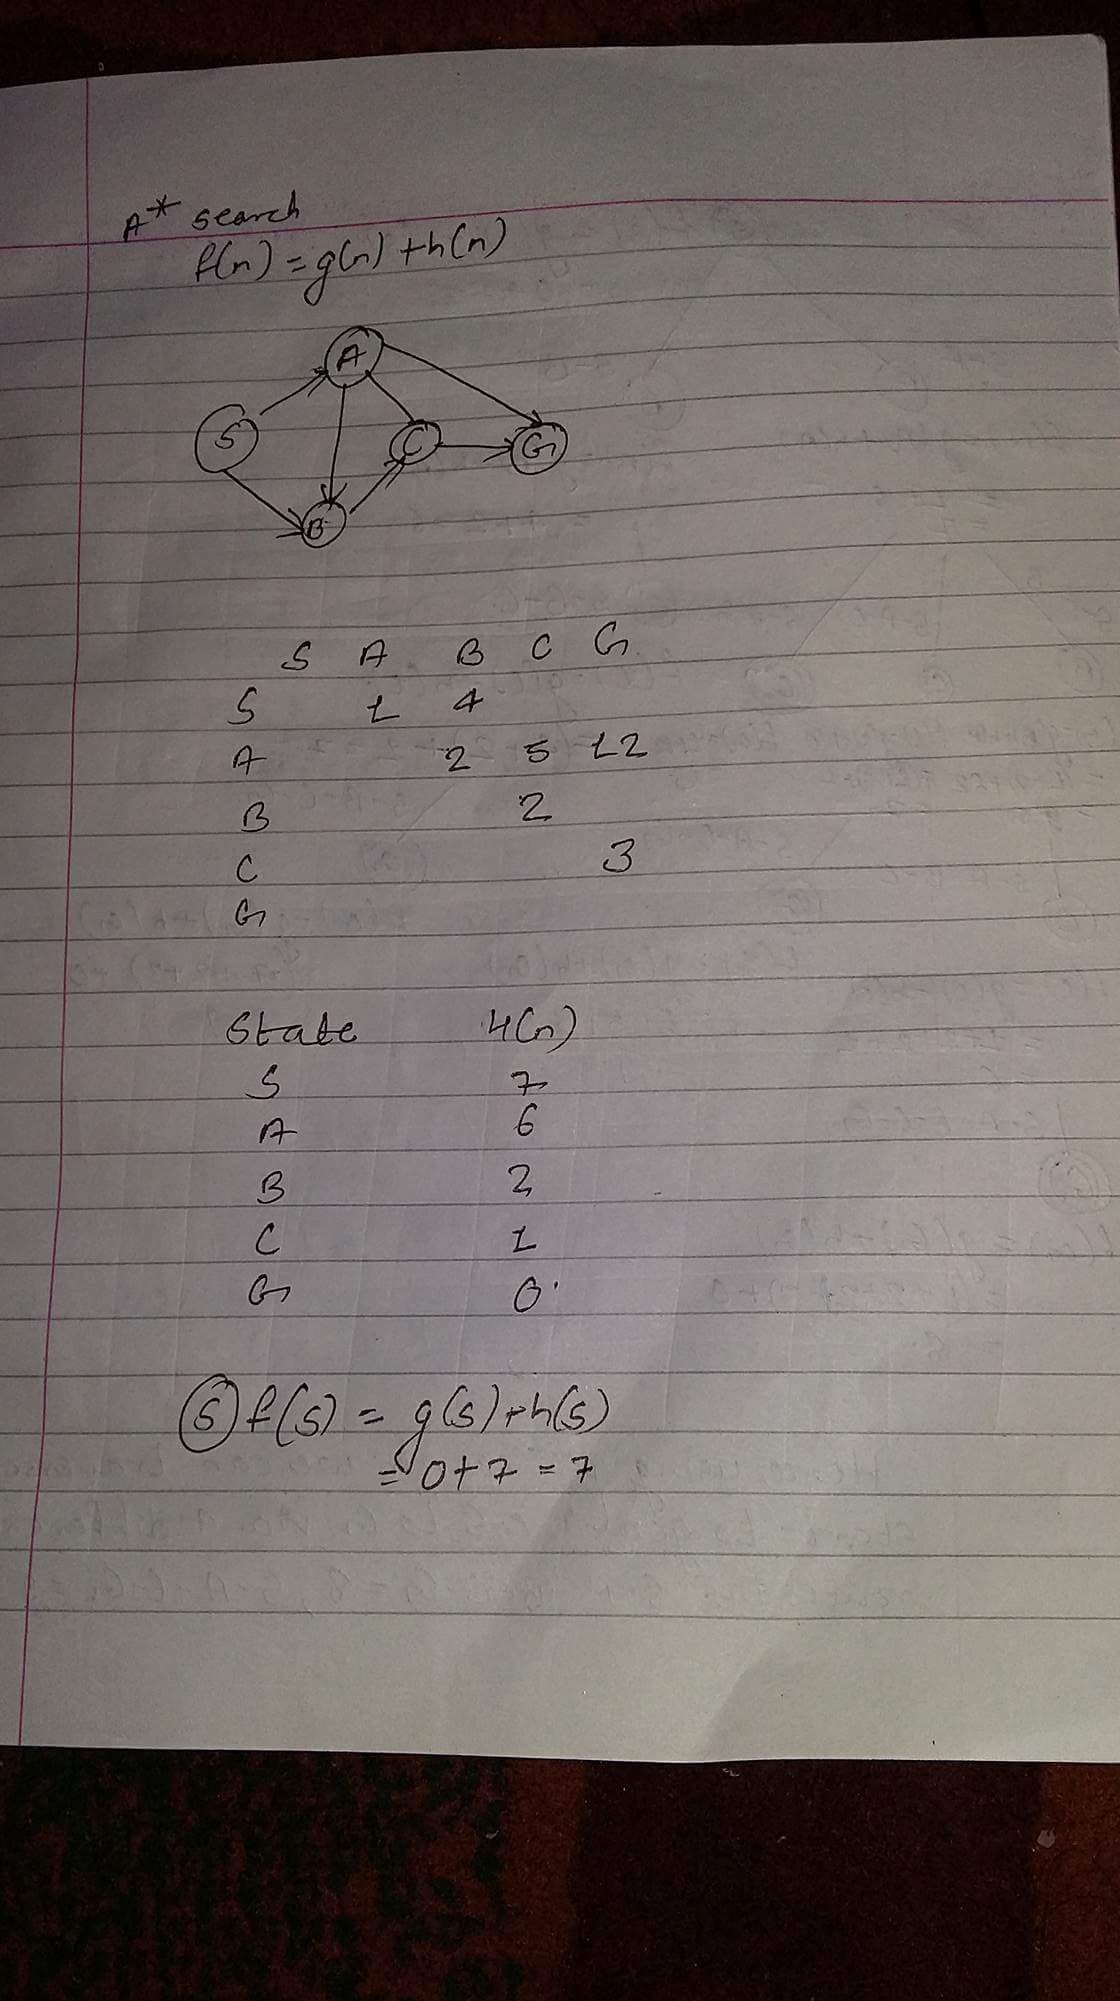 A* search
f(n) = g(n) + h(n)
A
S
C
G
B
S A B C G
S 1 4
A 2 5 12
B 2
C 3
G
State H(n)
S 7
A 6
B 2
C 1
G 0
S f(S) = g(S) + h(S)
= 0 + 7 = 7